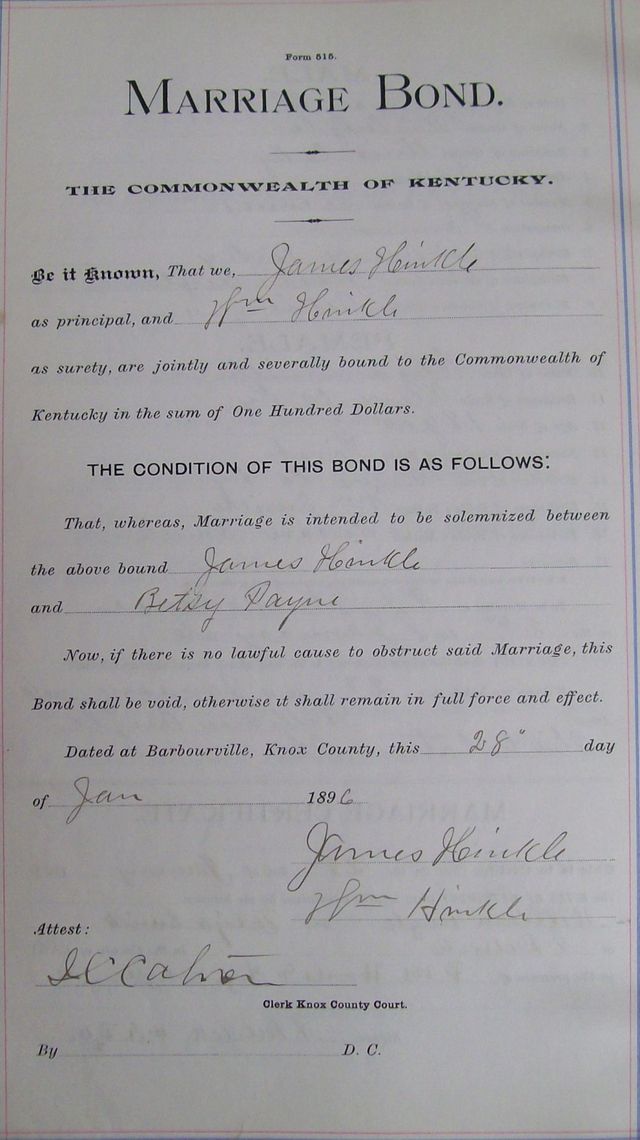 Form 515.
MARRIAGE BOND.
THE COMMONWEALTH OF KENTUCKY.
Be it Known, That we, James Hinkle
as principal, and Wm Hinkle
as surety, are jointly and severally bound to the Commonwealth of
Kentucky in the sum of One Hundred Dollars.
THE CONDITION OF THIS BOND IS AS FOLLOWS:
That, whereas, Marriage is intended to be solemnized between
the above bound James Hinkle
and Betsy Payne
Now, if there is no lawful cause to obstruct said Marriage, this
Bond shall be void, otherwise it shall remain in full force and effect.
Dated at Barbourville, Knox County, this 28" day
of Jan 1896
James Hinkle
Wm Hinkle
Attest:
Clerk Knox County Court.
By D. C.